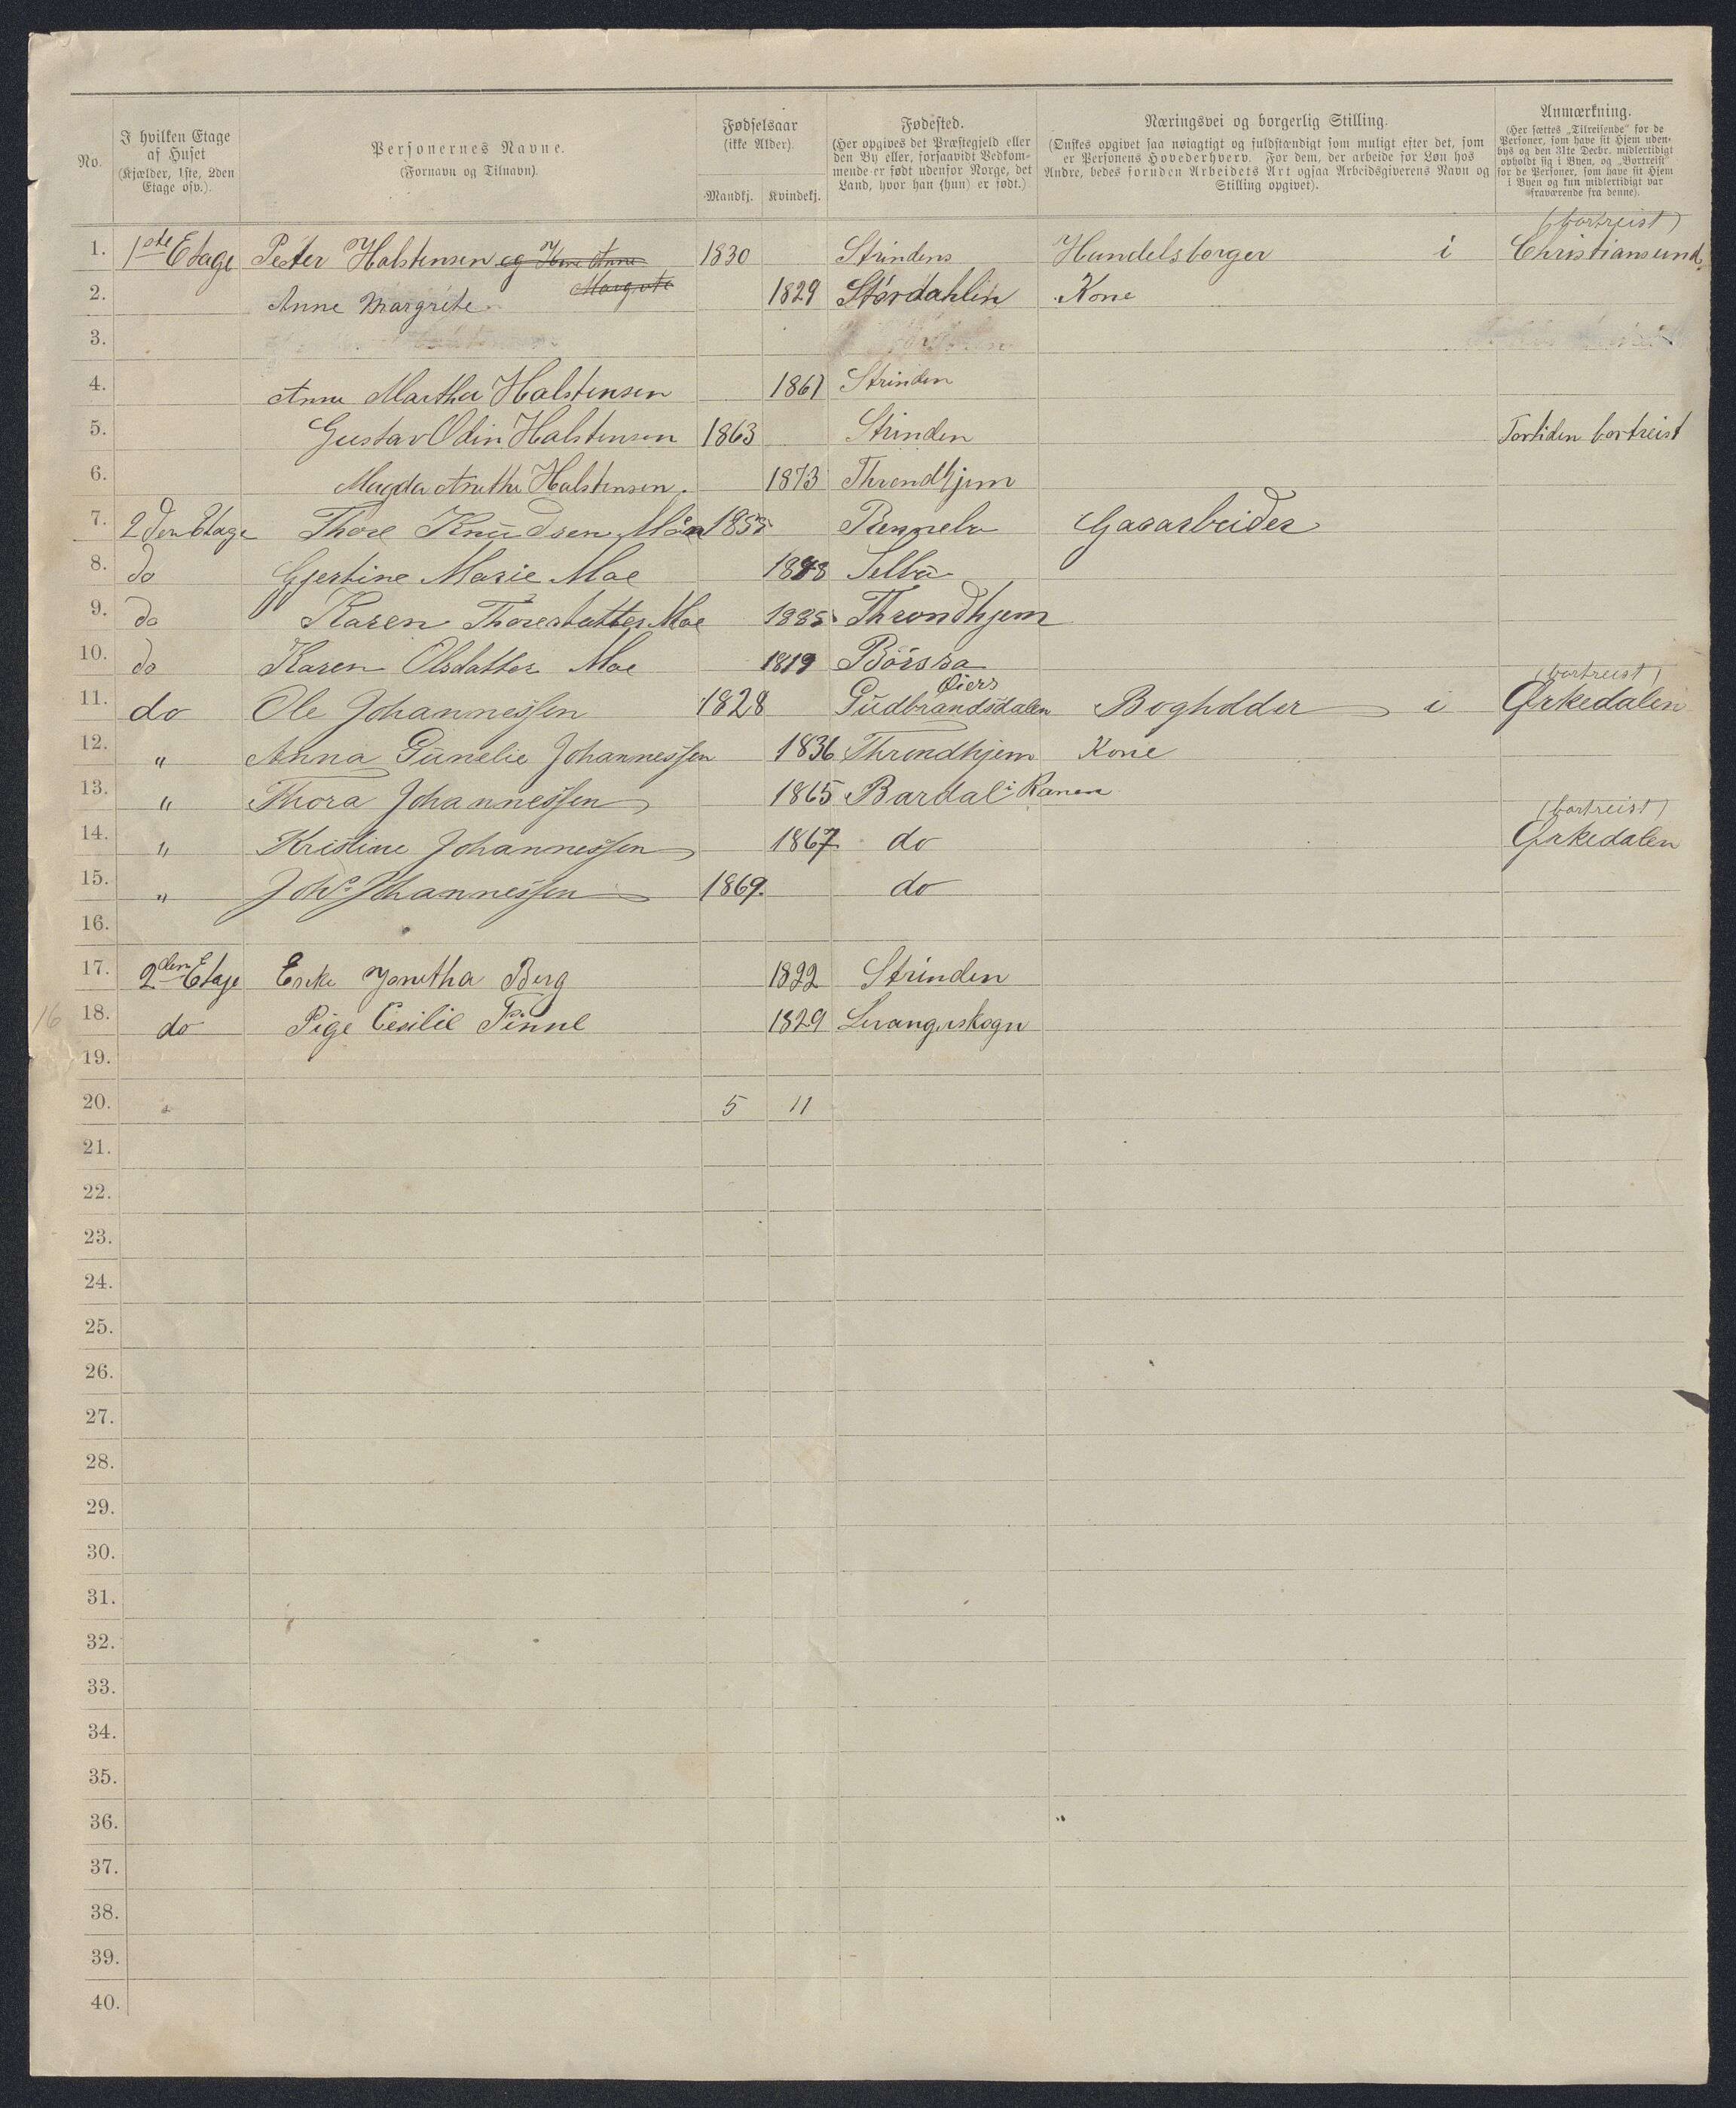 No.
I hvilken Etage af Huset (Kjælder, 1ste, 2den Etage osv.).
Personernes Navne. (Fornavn og Tilnavn).
Fødselsaar (ikke Alder).
Mandkj. Kvindekj.
Fødested. (Her opgives det Præstegjeld eller den By eller, forsaavidt Vedkommende er født udenfor Norge, det Land, hvor han (hun) er født.)
Næringsvei og borgerlig Stilling. (Ønskes opgivet saa nøiagtigt og fuldstændigt som muligt efter det, som er Personens Hovederhverv. For dem, der arbeide for Løn hos Andre, bedes foruden Arbeidets Art ogsaa Arbeidsgiverens Navn og Stilling opgivet).
Anmærkning. (Her sættes „Tilreisende" for de Personer, som have sit Hjem udenbys og den 31te Decbr. midlertidigt opholdt sig i Byen, og „Bortreist" for de Personer, som have sit Hjem i Byen og kun midlertidigt var fraværende fra denne).
(bortreist)
1. 1ste Etage Peter Halstensen og Kone Anne 1830 Strindens Handelsborger i Christiansund
Margrete
2. Anne Margrete 1829 Størdahlen Kone
3.
4. Anne Martha Halstensen 1861 Strinden
5. Gustav Odin Halstensen 1863 Strinden Fortiden bortreist
6. Magda Anethe Halstensen 1873 Throndhjem
7. 2den Etage Thore Knudsen Moe 1855 Rennebo Gasarbeider
8. do Gjertine Marie Moe 1848 Selbu
9. do Karen Thoresdatter Moe 1885 Throndhjem
10. do Karen Olsdatter Moe 1819 Børssa
Øiers (bortreist)
11. do Ole Johannessen 1828 Gudbrandsdalen Bogholder i Ørkedalen
12. " Anna Gunelie Johannessen 1836 Throndhjem Kone
13. " Thora Johannessen 1865 Bardal i Ranen
(bortreist)
14. " Kristine Johannessen 1867 do Ørkedalen
15. " Johs. Johannessen 1869. do
16.
17. 2den Etage Enke Berg 1822 Strinden
16 18. do Pige Cesilie Finne 1829 Levangerskogn
19.
20. 5 11
21.
22.
23.
24.
25.
26.
27.
28.
29.
30.
31.
32.
33.
34.
35.
36.
37.
38.
39.
40.